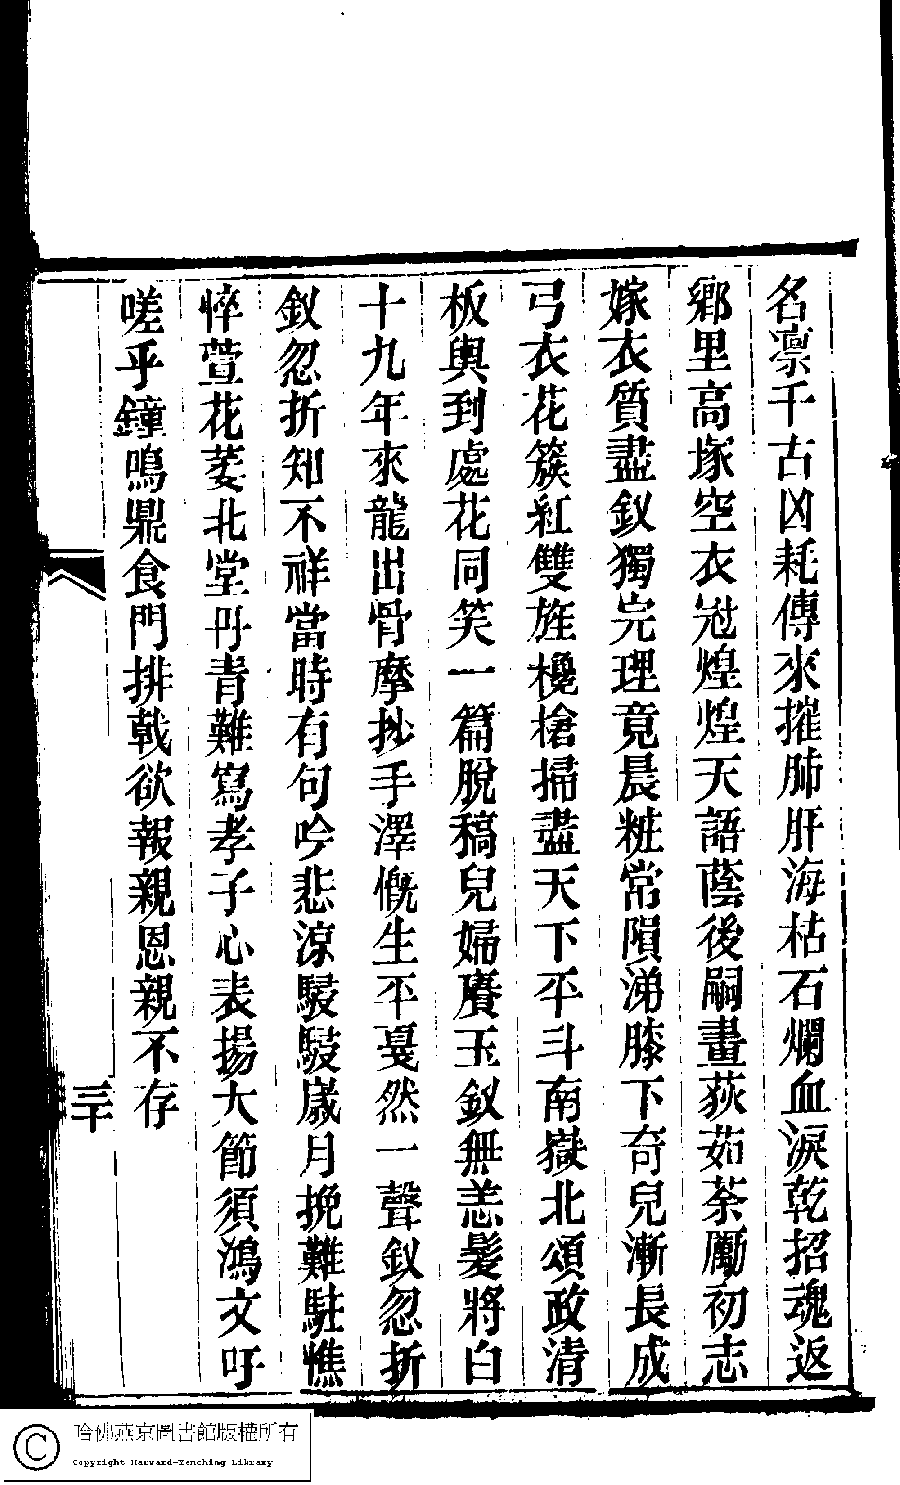 名凛千古凶耗傳來摧肺肝海枯石爛血淚乾招魂返
鄉里高塚空衣冠煌煌天語蔭後嗣畫荻茹荼勵初志
嫁衣質盡釵獨完理竟晨粧常隕涕膝下奇兒漸長成
弓衣花簇紅雙旌欃槍掃盡天下平斗南嶽北頌政清
板輿到處花同笑一篇脫稿兒婦賡玉釵無恙髮將白
十九年來龍出骨摩抄手澤慨生平戛然一聲釵忽折
釵忽折知不祥當時有句吟悲涼駸駸歲月挽難駐憔
悴萱花萎北堂丹青難寫孝子心表揚大節須鴻文吁
嗟乎鐘鳴鼎食門排戟欲報親恩親不存
三十
哈佛燕京圖書館版權所有
Copyright Harvard-Yenching Library